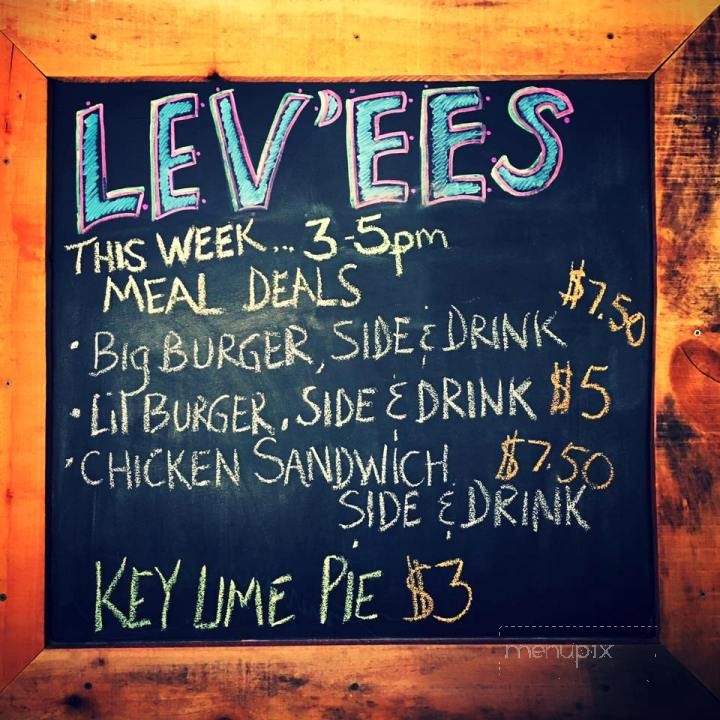 LEV'EES
THIS WEEK... 3-5pm
MEAL DEALS
• Big BURGER, SIDE & DRINK $7.50
• Lil BURGER, SIDE & DRINK $5
• CHICKEN SANDWICH $7.50
SIDE & DRINK
KEY LIME PIE $3
menupix